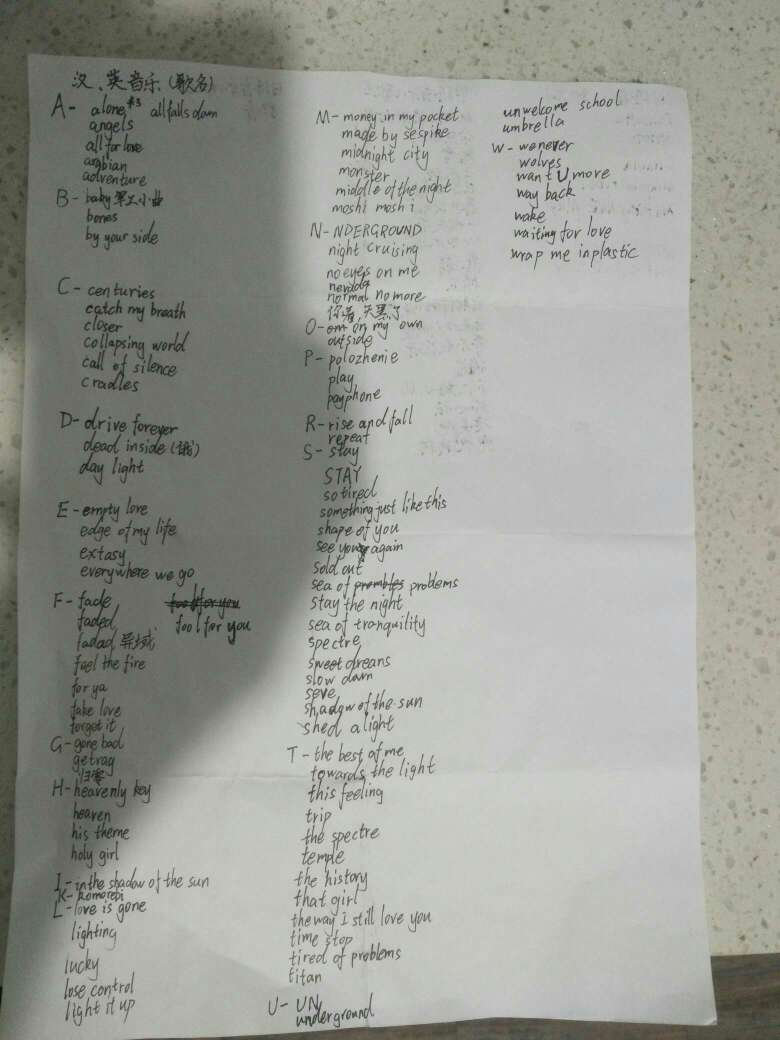 汉、英音乐(歌名)
A- alone #3 all falls down
angels
all for love
arabian
adventure
B- baby 军工小曲
bones
by your side
C- centuries
catch my breath
closer
collapsing world
call of silence
cradles
D- drive forever
dead inside
day light
E- empty love
edge of my life
extasy
everywhere we go
F- fade
faded fool for you
fadad 异域
fuel the fire
for ya
fake love
forget it
G- gone bad
getrag
归零
H- heavenly key
heaven
his theme
holy girl
I- in the shadow of the sun
K- komorebi
L- love is gone
lighting
lucky
lose control
light it up
M- money in my pocket
made by sespike
midnight city
monster
middle of the night
moshi moshi
N- NDERGROUND
night cruising
no eyes on me
nevada
normal no more
你看,天黑了
O- on my own
outside
P- polozhenie
play
payphone
R- rise and fall
repeat
S- stay
STAY
so tired
something just like this
shape of you
see you again
sold out
sea of problems
stay the night
sea of tranquility
spectre
sweet dreans
slow down
seve
shadow of the sun
shed a light
T- the best of me
towards the light
this feeling
trip
the spectre
temple
the history
that girl
the way I still love you
time stop
tired of problems
titan
U- UN
underground
unwelcome school
umbrella
W- wenever
wolves
want U more
way back
wake
waiting for love
wrap me in plastic